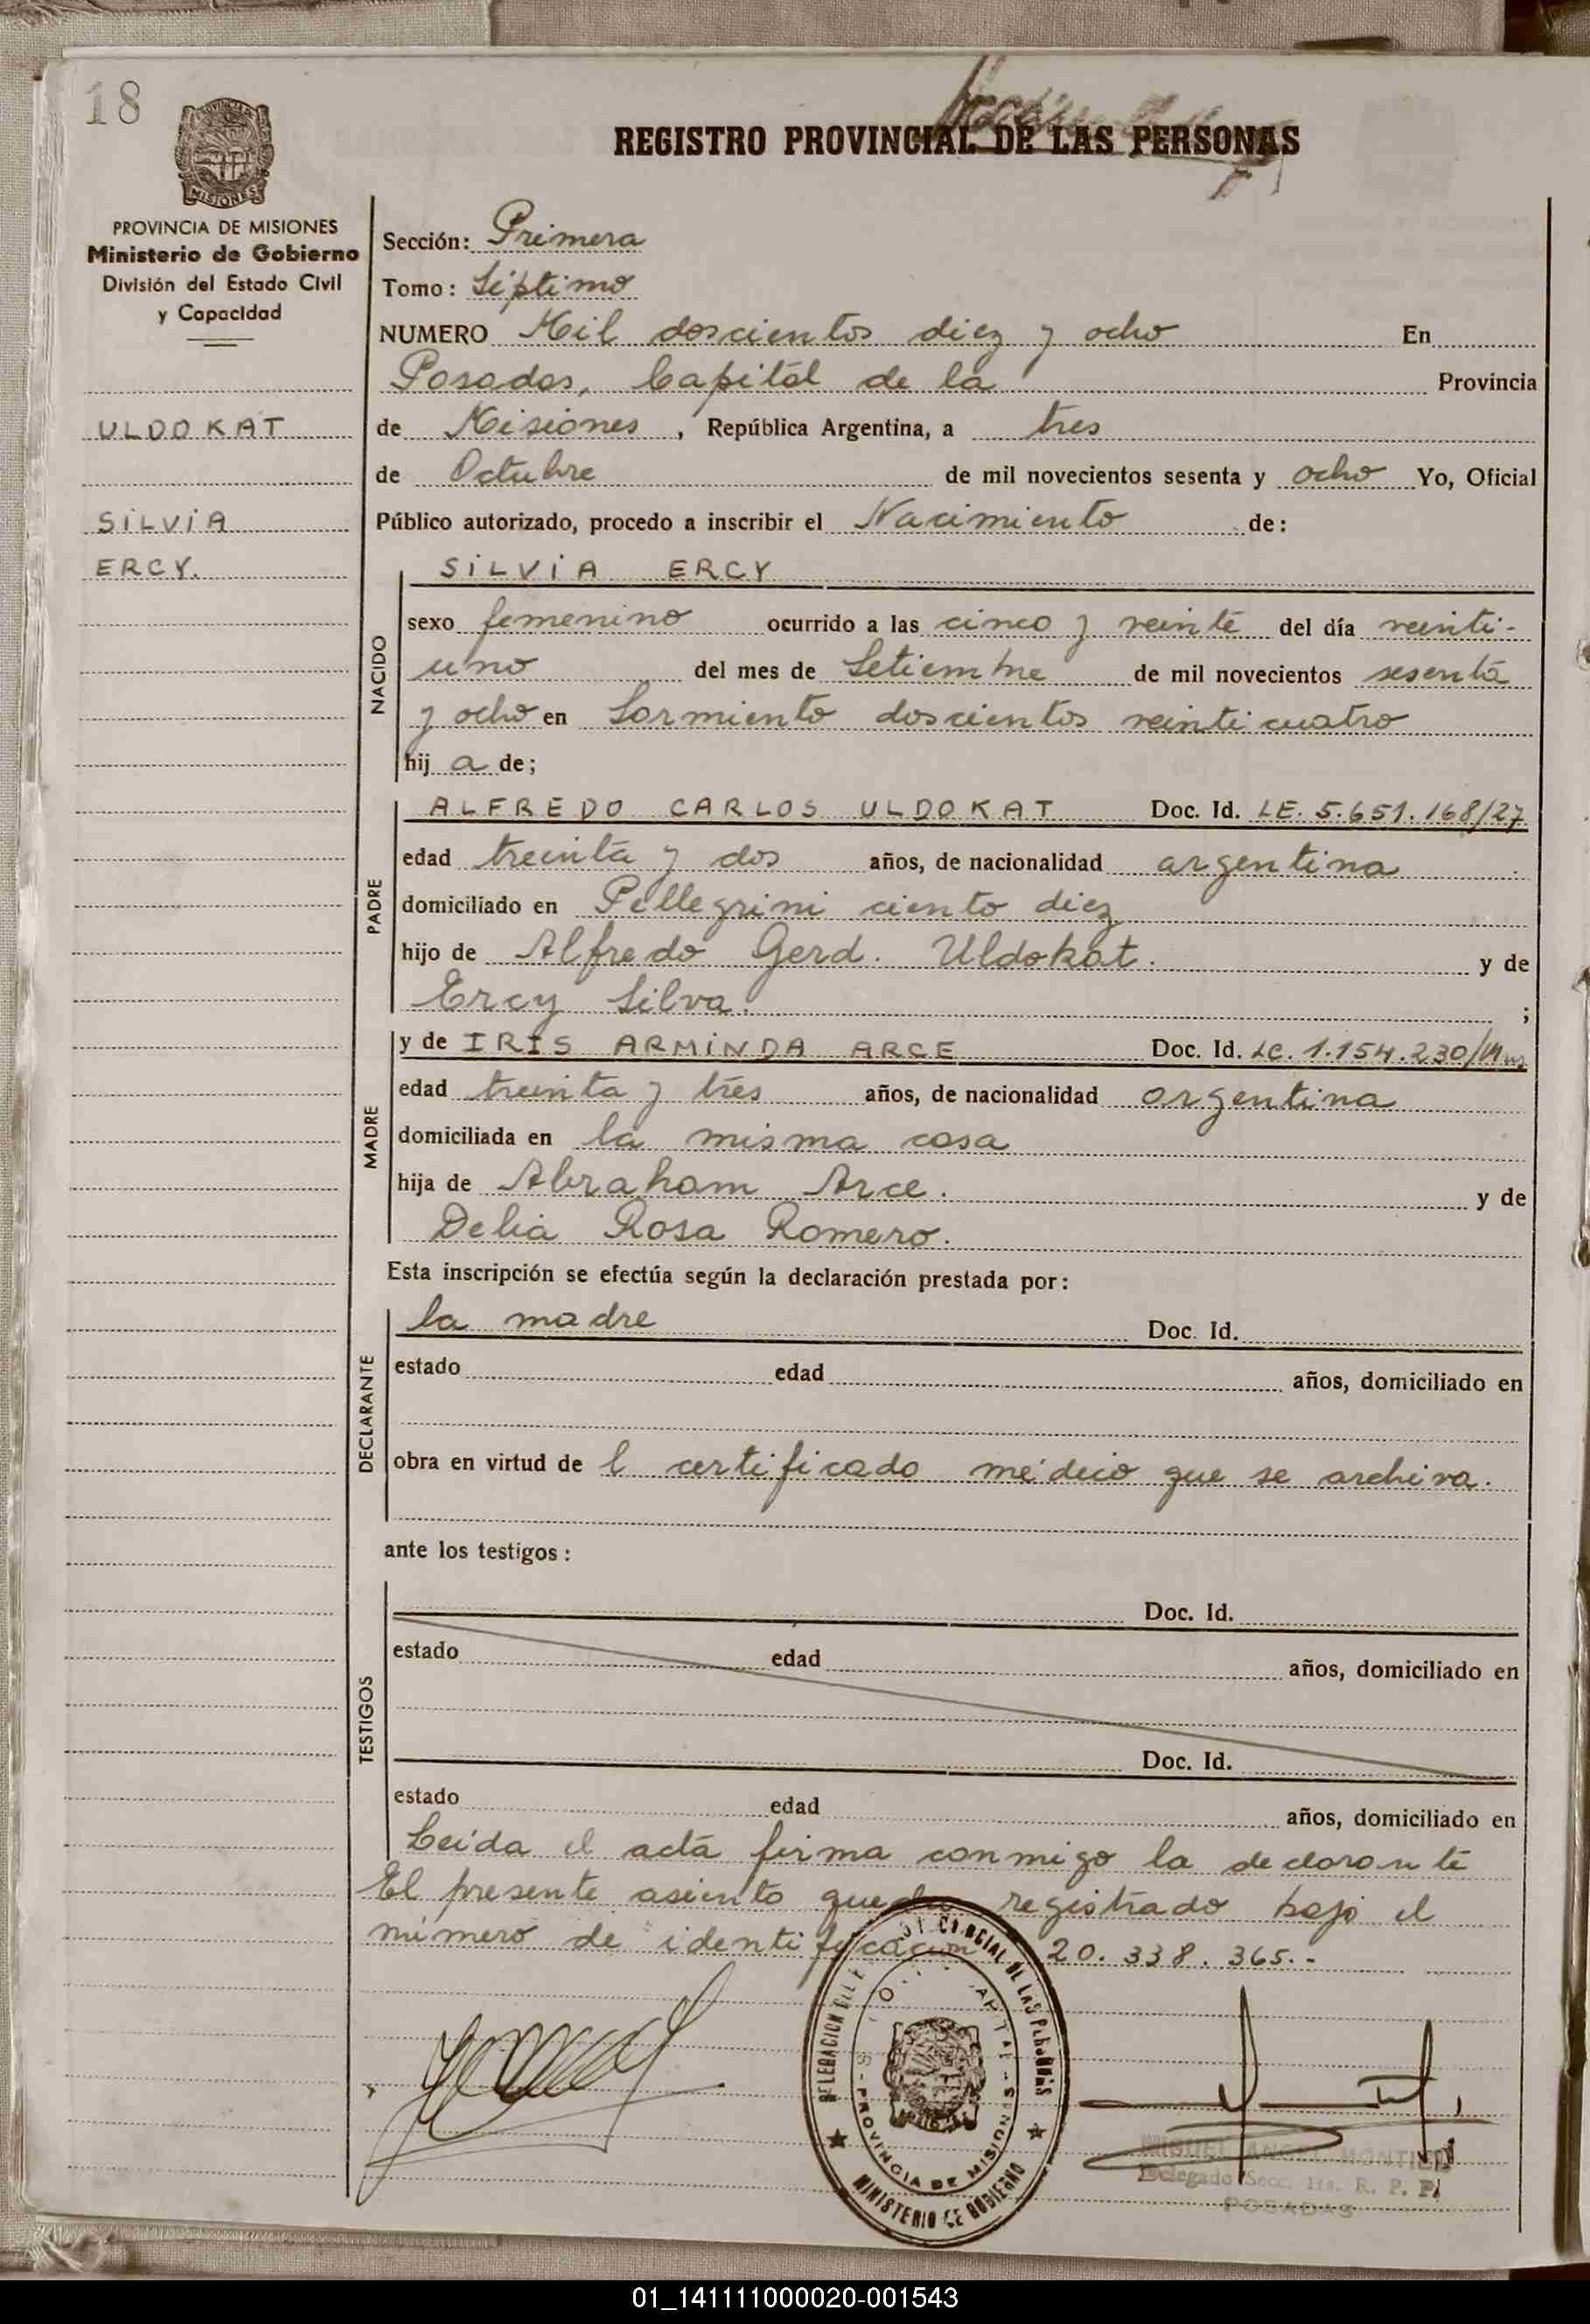 18
PROVINCIA DE MISIONES
Ministerio de Gobierno
División del Estado Civil
y Capacidad
ULDOKAT
SILVIA
ERCY.
REGISTRO PROVINCIAL DE LAS PERSONAS
Sección: Primera
Tomo: Séptimo
NUMERO Mil doscientos diez y ocho En
Posadas, Capital de la Provincia
de Misiones, República Argentina, a tres
de Octubre de mil novecientos sesenta y ocho Yo, Oficial
Público autorizado, procedo a inscribir el Nacimiento de:
NACIDO
SILVIA ERCY
sexo femenino ocurrido a las cinco y veinte del día veinti-
uno del mes de Setiembre de mil novecientos sesenta
y ocho en Sarmiento doscientos veinticuatro
hij a de;
PADRE
ALFREDO CARLOS ULDOKAT Doc. Id. LE. 5.651.168/27
edad treinta y dos años, de nacionalidad argentina
domiciliado en Pellegrini ciento diez
hijo de Alfredo Gerd. Uldokat. y de
Ercy Silva. ;
MADRE
y de IRIS ARMINDA ARCE Doc. Id. LC. 1.154.230
edad treinta y tres años, de nacionalidad argentina
domiciliada en la misma casa
hija de Abraham Arce. y de
Delia Rosa Romero.
Esta inscripción se efectúa según la declaración prestada por:
DECLARANTE
la madre Doc. Id.
estado edad años, domiciliado en
obra en virtud de l certificado médico que se archiva.
ante los testigos:
TESTIGOS
Doc. Id.
estado edad años, domiciliado en
Doc. Id.
estado edad años, domiciliado en
Leída el acta firma conmigo la declarante
El presente asiento queda registrado bajo el
número de identificación 20.338.365.-
PROVINCIAL DE LAS PERSONAS
PROVINCIA DE MISIONES
MINISTERIO DE GOBIERNO
MIGUEL ANGEL MONTIEL
Delegado Secc. 1ra. R. P. P.
POSADAS
01_141111000020-001543